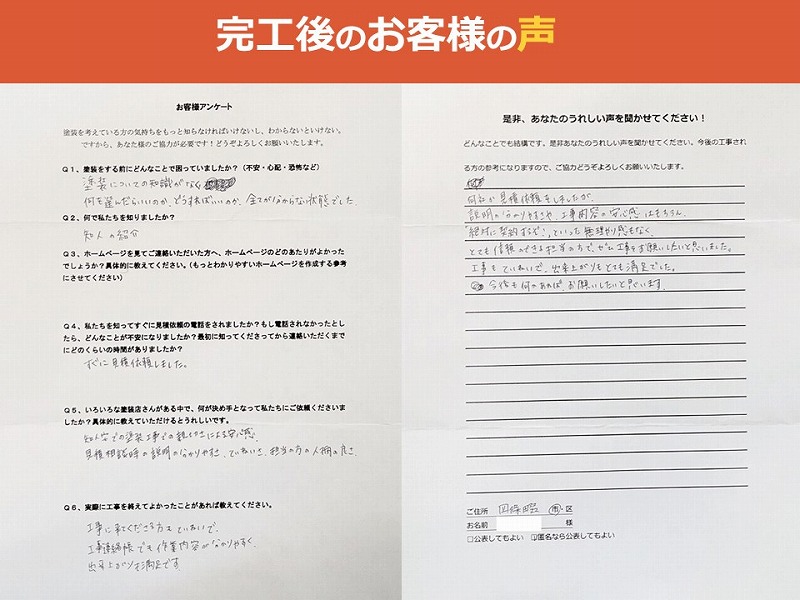 完工後のお客様の声
お客様アンケート
塗装を考えている方の気持ちをもっと知らなければいけないし、わからないといけない。
ですから、あなた様のご協力が必要です！どうぞよろしくお願いいたします。
Q1、塗装をする前にどんなことで困っていましたか？（不安・心配・恐怖など）
塗装についての知識がなく
何を選んだらいいのか、どうすればいいのか、全てが分からない状態でした
Q2、何で私たちを知りましたか？
知人の紹介
Q3、ホームページを見てご連絡いただいた方へ、ホームページのどのあたりがよかった
でしょうか？具体的に教えてください。（もっとわかりやすいホームページを作成する参考
にさせてください）
Q4、私たちを知ってすぐに見積依頼の電話をされましたか？もし電話されなかったとし
たら、どんなことが不安になりましたか？最初に知ってくださってから連絡いただくまで
にどのくらいの時間がありましたか？
すぐに見積依頼しました。
Q5、いろいろな塗装店さんがある中で、何が決め手となって私たちにご依頼くださいま
したか？具体的に教えていただけるとうれしいです。
知人宅での塗装工事での
による安心感、
見積相談時の説明の分かりやすさ、ていねいさ、担当の方の人柄の良さ
Q6、実際に工事を終えてよかったことがあれば教えてください。
工事に来てくださる方もていねいで、
工事連絡帳でも作業内容が分かりやすく、
出来上がりも満足です
是非、あなたのうれしい声を聞かせてください！
どんなことでも結構です。是非あなたのうれしい声を聞かせてください。今後の工事され
る方の参考になりますので、ご協力どうぞよろしくお願いします。
何社か見積依頼をしましたが、
説明の分かりやすさや、工事内容の安心感はもちろん、
絶対に契約するぞ！といった無理矢理感もなく、
とても信頼のできる担当の方で、ぜひ工事をお願いしたいと思いました。
工事もていねいで、出来上がりもとても満足でした。
今後も何かあれば、お願いしたいと思います。
ご住所 四條畷 市・区
お名前 様
□公表してもよい ☑匿名なら公表してもよい